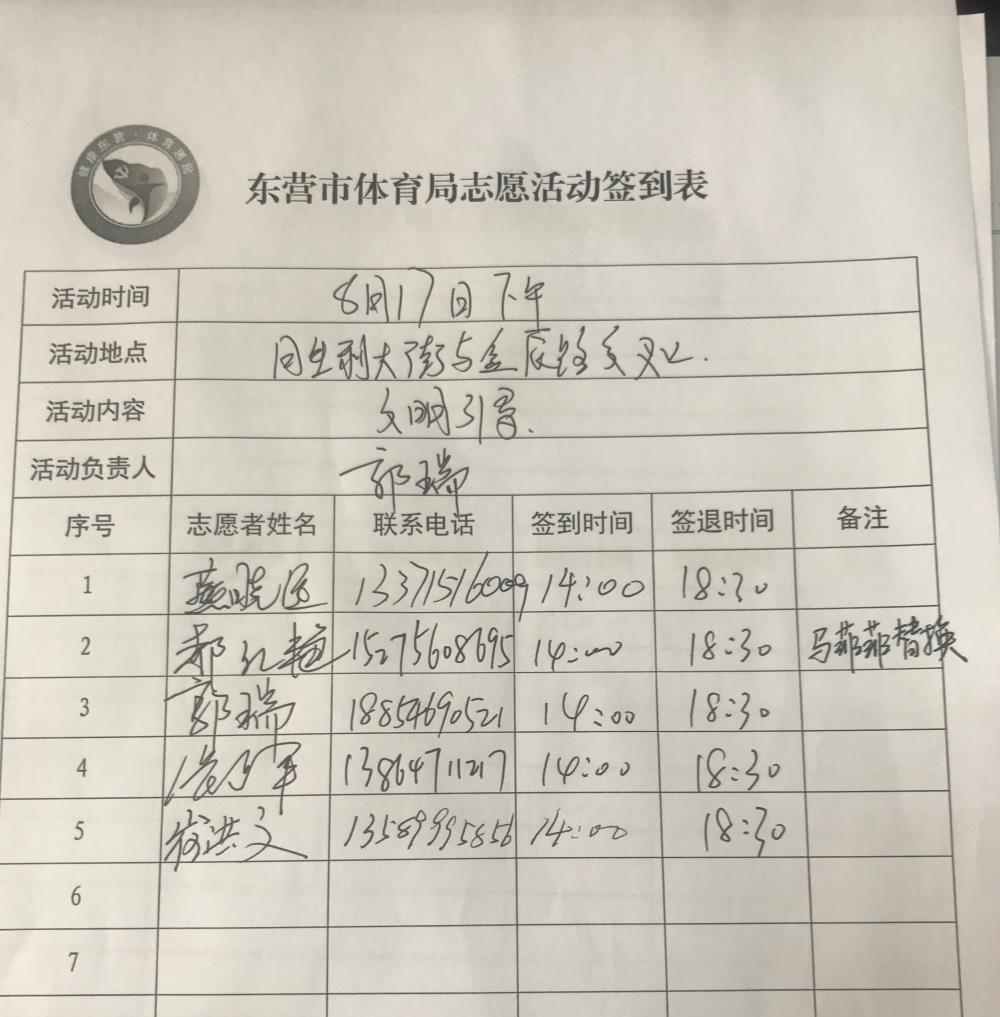 健康东营·体育惠民
东营市体育局志愿活动签到表
活动时间 8月17日下午
活动地点 大街与金辰路交叉口.
活动内容 文明引导.
活动负责人 郭瑞
序号 志愿者姓名 联系电话 签到时间 签退时间 备注
1 燕晓 13371516009 14:00 18:30
2 郝红艳 15275608695 14:00 18:30 马菲菲替换
3 郭瑞 18854690521 14:00 18:30
4 13864711217 14:00 18:30
5 洪文 13589995856 14:00 18:30
6
7